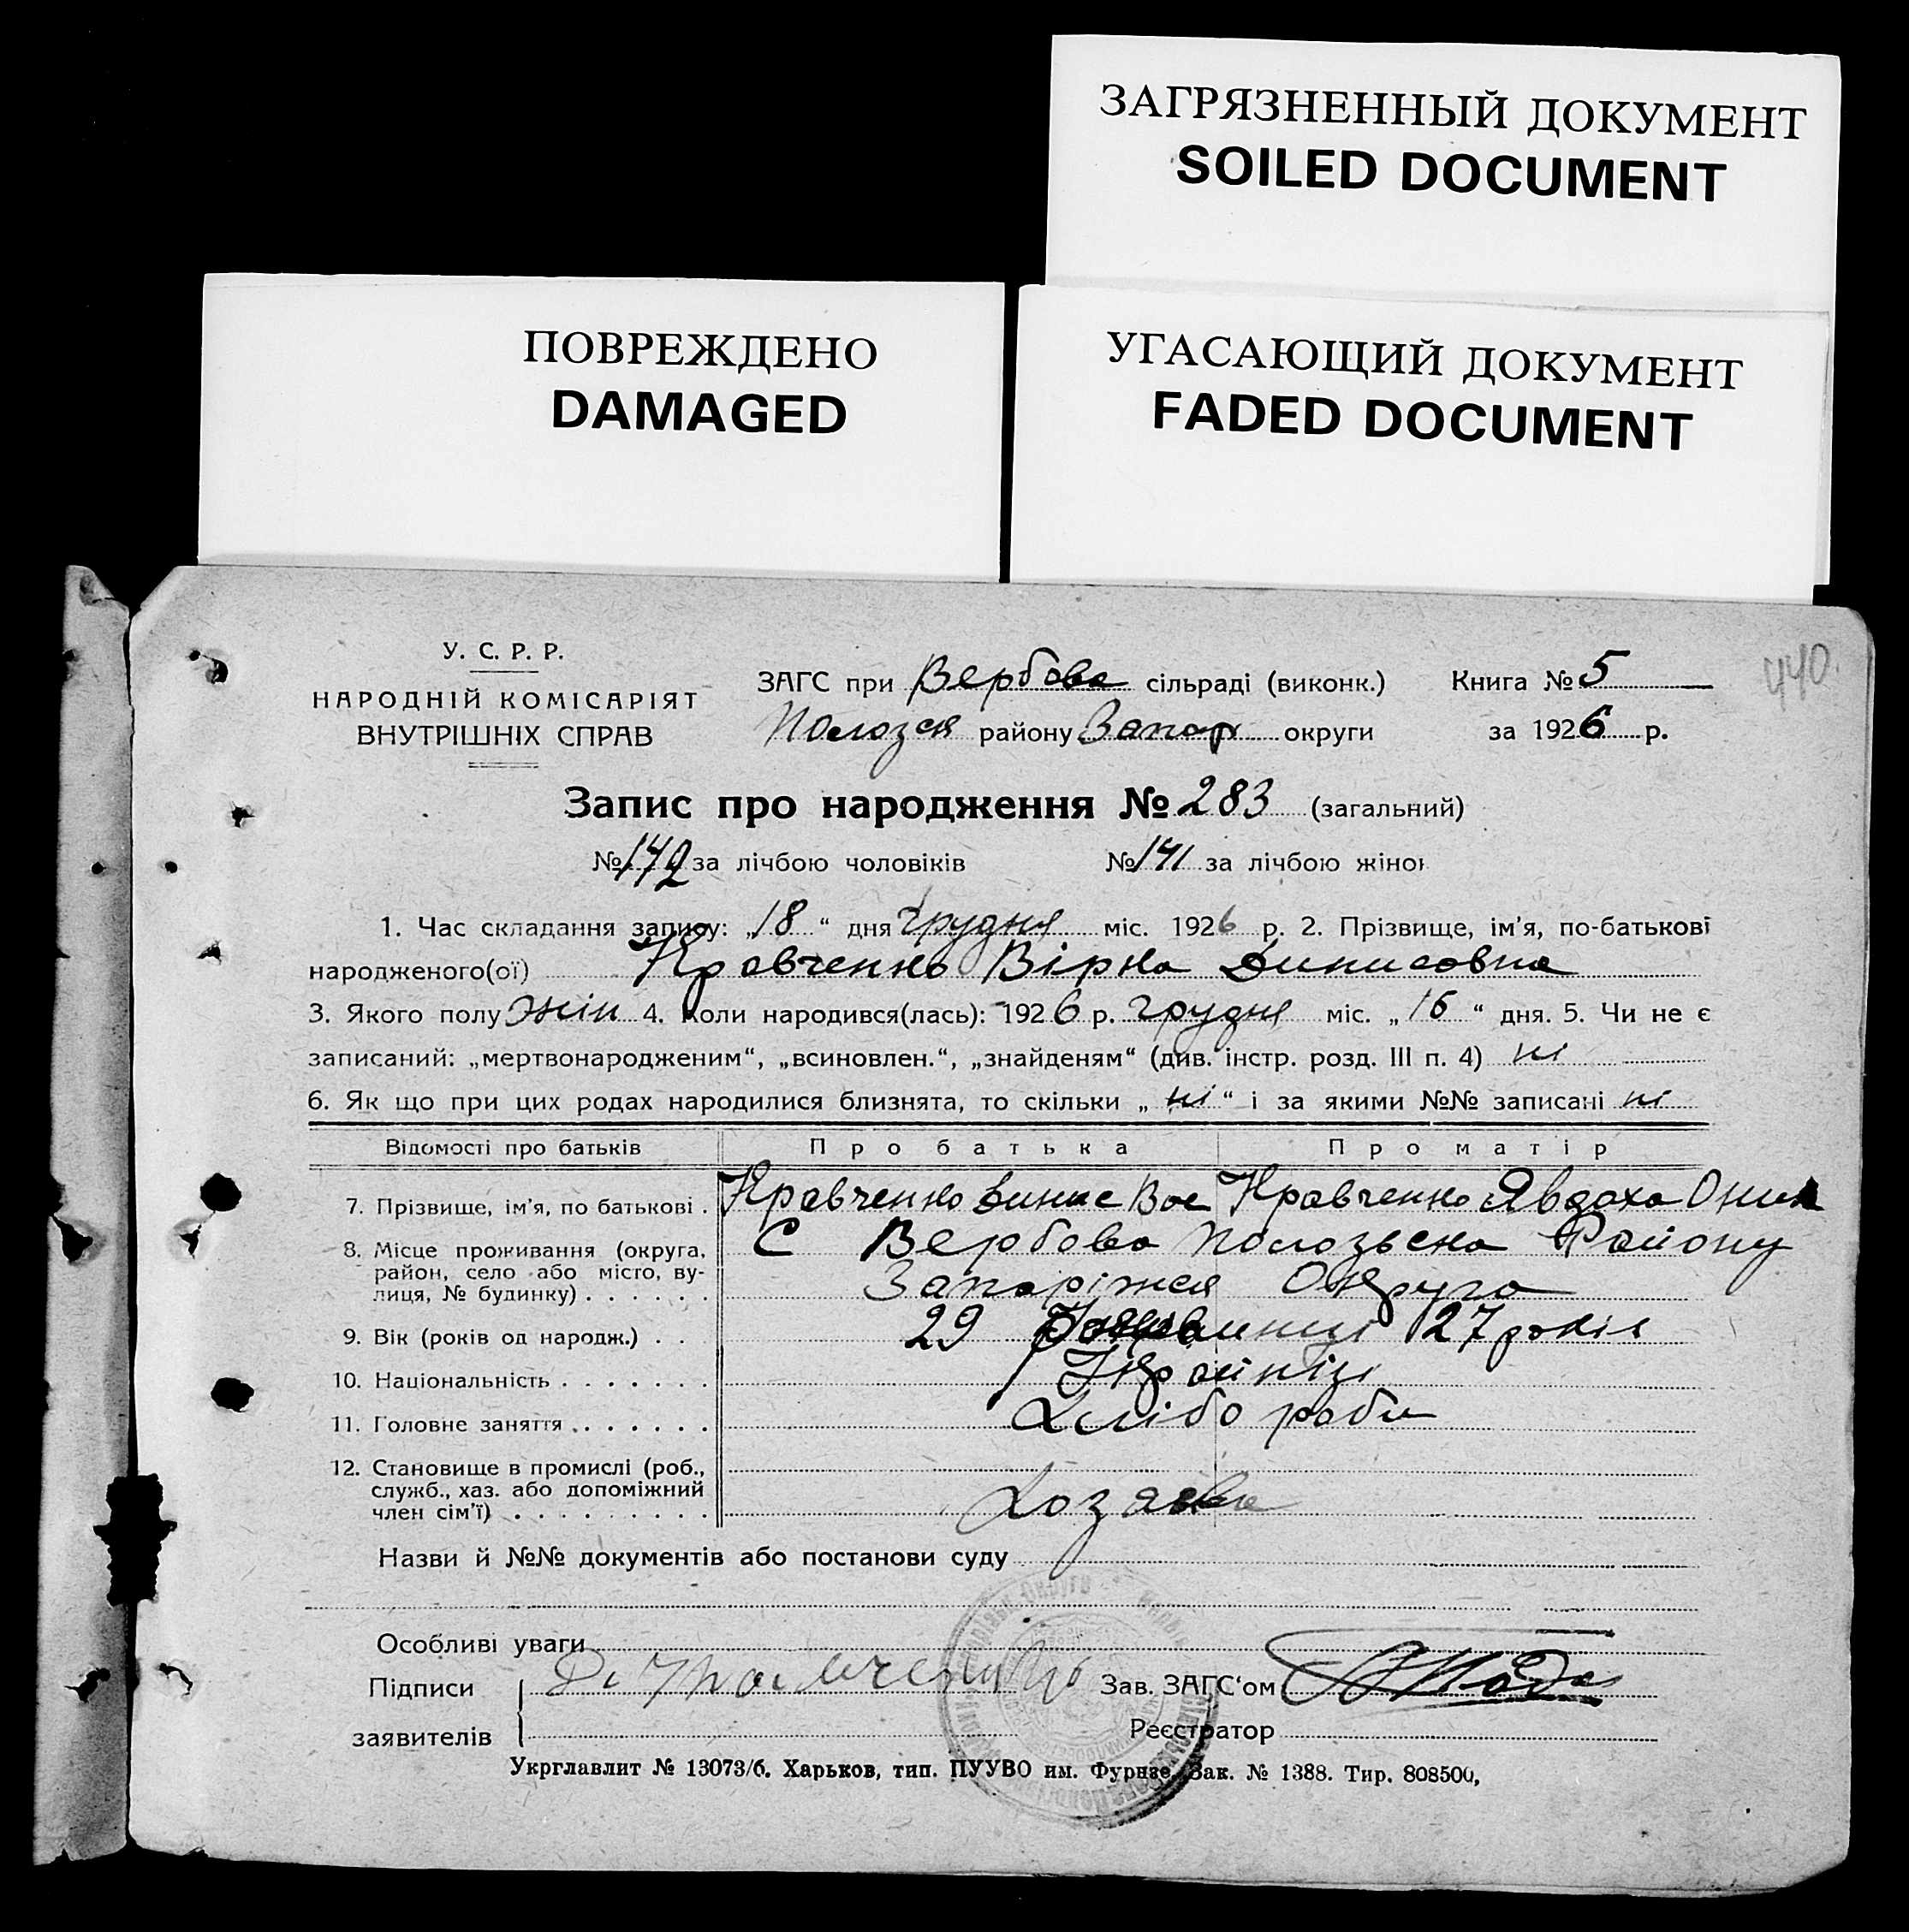 ЗАГРЯЗНЕННЫЙ ДОКУМЕНТ
SOILED DOCUMENT
ПОВРЕЖДЕНО
DAMAGED
УГАСАЮЩИЙ ДОКУМЕНТ
FADED DOCUMENT
440.
У. С. Р. Р.
НАРОДНІЙ КОМІСАРІЯТ
ВНУТРІШНІХ СПРАВ
ЗАГС при Вербова сільраді (виконк.) Книга № 5
району Запор округи за 1926 р.
Запис про народження № 283 (загальний)
№ 142 за лічбою чоловіків № 141 за лічбою жінок
1. Час складання запису: „18“ дня грудня міс. 1926 р. 2. Прізвище, ім’я, по-батькові
народженого(ої) Кравченко Вірка Динисовна
3. Якого полу жін 4. Коли народився(лась): 1926 р. грудня міс. „16“ дня. 5. Чи не є
записаний: „мертвонародженим“, „всиновлен.“, „знайденям“ (див. інстр. розд. III п. 4) ні
6. Як що при цих родах народилися близнята, то скільки „ні“ і за якими №№ записані ні
Відомості про батьків Про батька Про матір
7. Прізвище, ім’я, по батькові . Кравченко Динис Вас Кравченко Явдоха Оник
8. Місце проживання (округа, район, село або місто, вулиця, № будинку) . . . . . . С Вербова Района
Округа
9. Вік (років од народж.) . . 29 27 років
10. Національність . . . . . . . Українці
11. Головне заняття . . . . . . . Хлібо роби
12. Становище в промислі (роб.,
служб., хаз. або допоміжний
член сім’ї) . . . . . . . . .
Назви й №№ документів або постанови суду
Особливі уваги
Підписи Кравченко Зав. ЗАГС‘ом
заявителів Реєстратор
Укрглавлит № 13073/б. Харьков, тип. ПУУВО им. Фурнзе. Зак. № 1388. Тир. 808500,